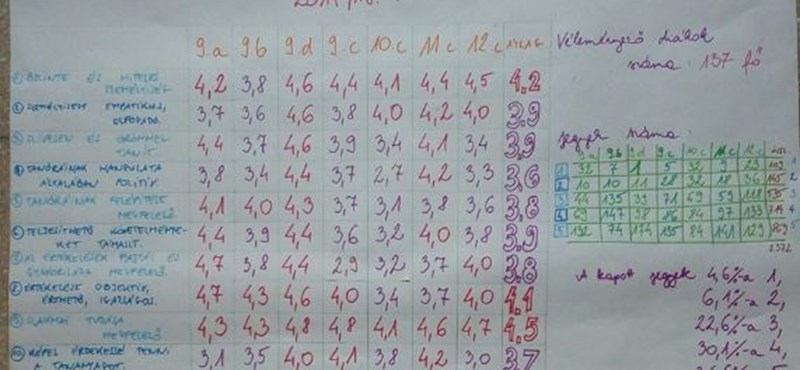 9.a 9.b 9.d 9.c 10.c 11.c 12.c ÁTLAG
① ŐSZINTE ÉS HITELES
SZEMÉLYISÉG 4,2 3,8 4,6 4,4 4,1 4,4 4,5 4.2
② SZEMÉLYISEN EMPATIKUS,
ELFOGADÓ. 3,7 3,6 4,6 3,8 4,0 4,2 4,0 3.9
③ SZÍVESEN ÉS ÖRÖMMEL
TANÍT. 4,4 3,7 4,6 3,9 3,4 4,1 3,4 3.9
④ TANÓRÁINAK HANGULATA
ÁLTALÁBAN POZITÍV. 3,8 3,4 4,4 3,7 2,7 4,2 3,3 3.6
⑤ TANÓRÁINAK FELÉPÍTÉSE
MEGFELELŐ. 4,1 4,0 4,3 3,7 3,1 3,8 3,6 3.8
⑥ TELJESÍTHETŐ KÖVETELMÉNYE-
KET TÁMASZT. 4,4 3,9 4,4 3,6 3,2 4,0 3,8 3.9
⑦ ÉS
MEGFELELŐ. 4,7 3,8 4,4 2,9 3,2 3,7 4,0 3.8
⑧ ÉRTÉKELÉSE OBJEKTÍV,
ÉRTHETŐ, IGAZSÁGOS. 4,7 4,3 4,6 4,0 3,4 3,7 4,0 4.1
⑨ SZAKMAI TUDÁSA
MEGFELELŐ. 4,3 4,3 4,8 4,8 4,1 4,6 4,7 4.5
⑩ KÉPES ÉRDEKESSÉ TENNI
A TANANYAGOT. 3,1 3,5 4,0 4,1 3,8 4,2 3,0 3.7
Véleményező diákok
száma: 137 fő
Jegyek száma:
9.a 9.b 9.d 9.c 10.c 11.c 12.c
1 32 7 1 5 32
2 10 10 11 28 32 18 36 145 2
3 44 135 39 71 69 59 118 535
4 69 147 98 86 84 97 133
5 132 74 174 135 84 141 129
2372
A kapott jegyek 4,6%-a 1,
6,1%-a 2,
22,6%-a 3,
30,1%-a 4,